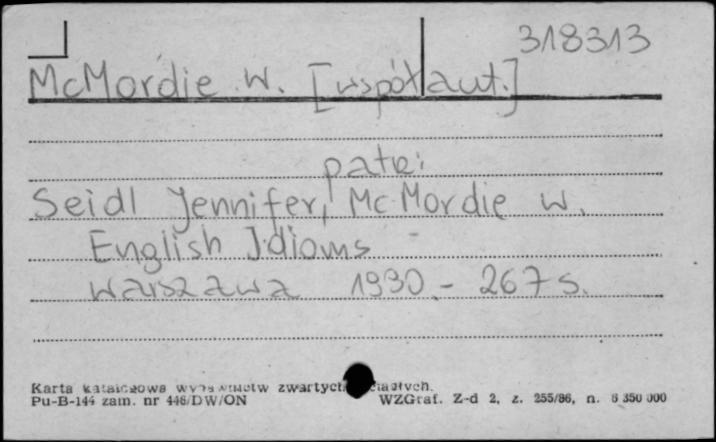 318313
McMordie W. [współaut.]
patrz:
Seidl Jennifer, McMordie W.
English Idioms
Warszawa 1990.- 267 s.
Karta katalogowa wydawnictw zwartych ciągłych.
Pu-B-144 zam. nr 446/DW/ON WZGraf. Z-d 2, z. 255/86, n. 6 350 000